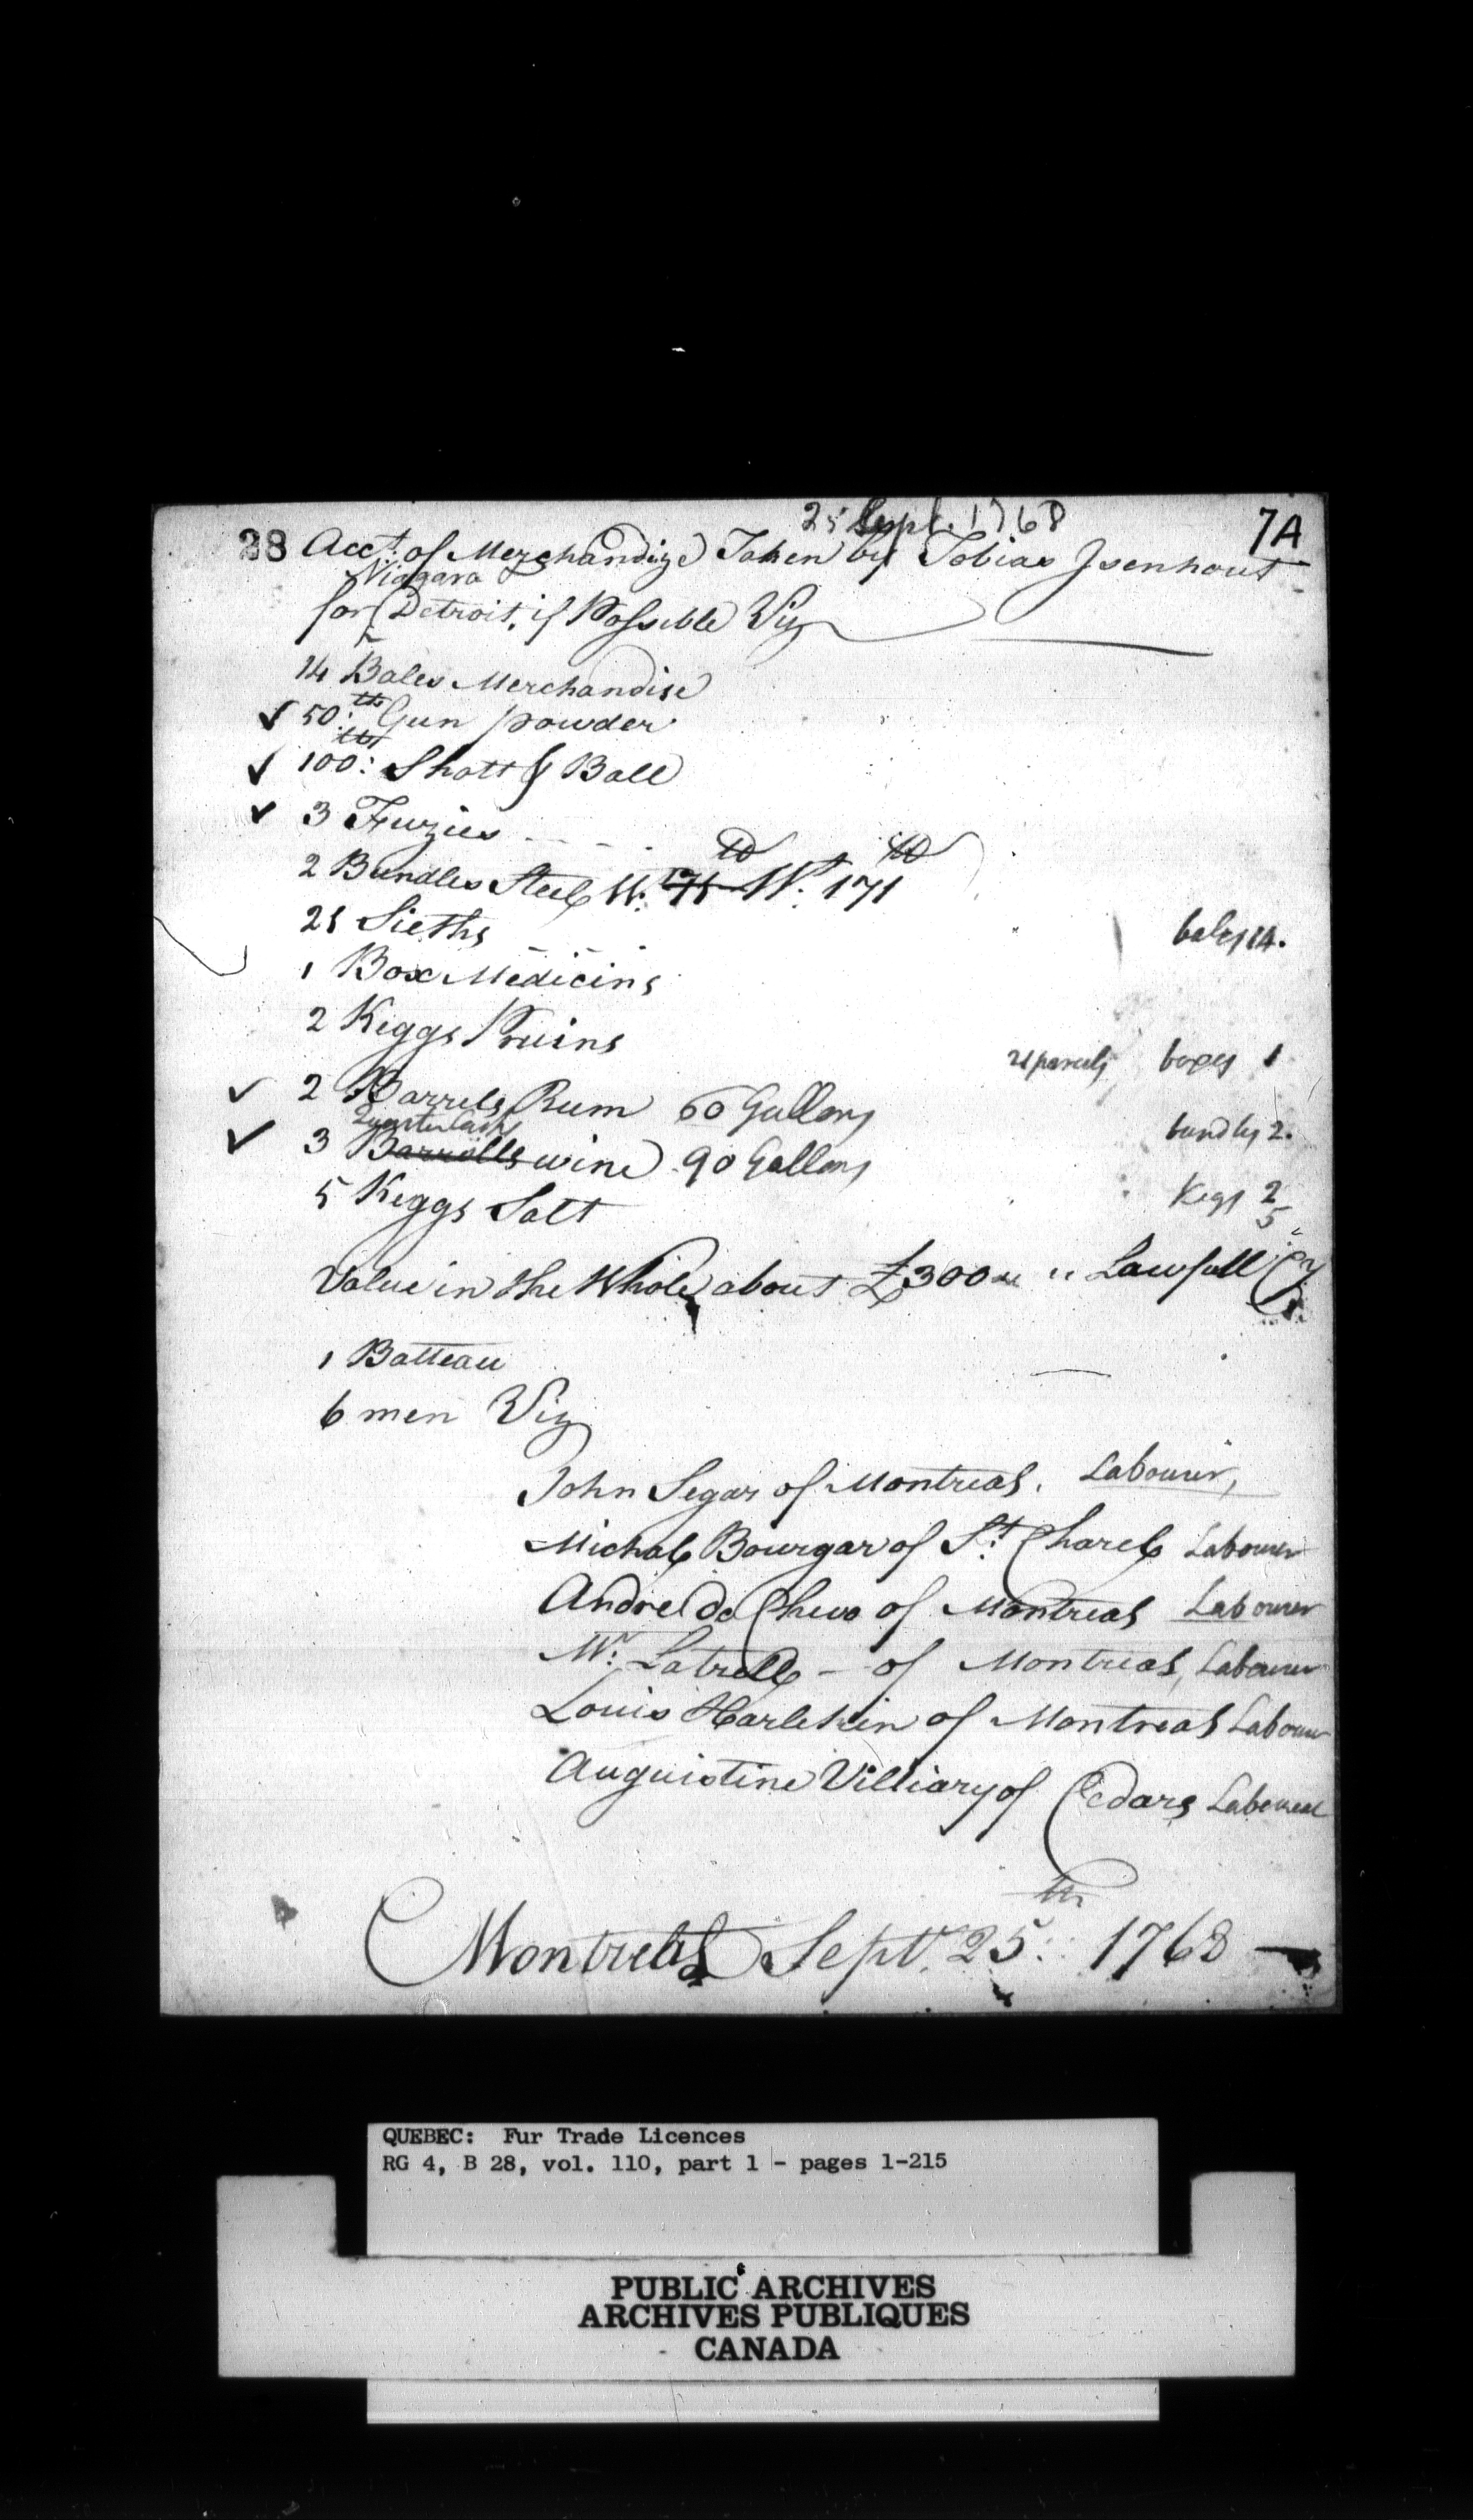 25 Sept. 1768
7A
28 Acct. of Merchandize Taken by Tobias Isenhout
Niagara
for Detroit, if Possible Viz
14 Bales Merchandise
50: lb Gun powder
100: lb Shott & Ball
3 Fuzies
2 Bundles Steel Wt. 171 lb
21 Sieths
bales 14.
1 Box Medicins
2 Keggs Pruins
21 parcels boxes 1
2 Barrels Rum 60 Gallons
Quarter Casks
bundles 2.
3 Barrolls wine 90 Gallons
5 Keggs Salt
Kegs 2
5
Value in the Whole about £300 " " Lawfull Cy.
1 Batteau
6 men Viz
John Segar of Montreal. Labourer,
Michal Bourgar of St. Charel Labourer
Andre de Chevo of Montreal Labourer
Mr. Latrell - of Montreal, Labourer
Louis Harlekin of Montreal Labour
Auguistine Villiary of Cedars Labourer
Montreal Septr. 25th: 1768
QUEBEC: Fur Trade Licences
RG 4, B 28, vol. 110, part 1 - pages 1-215
PUBLIC ARCHIVES
ARCHIVES PUBLIQUES
CANADA